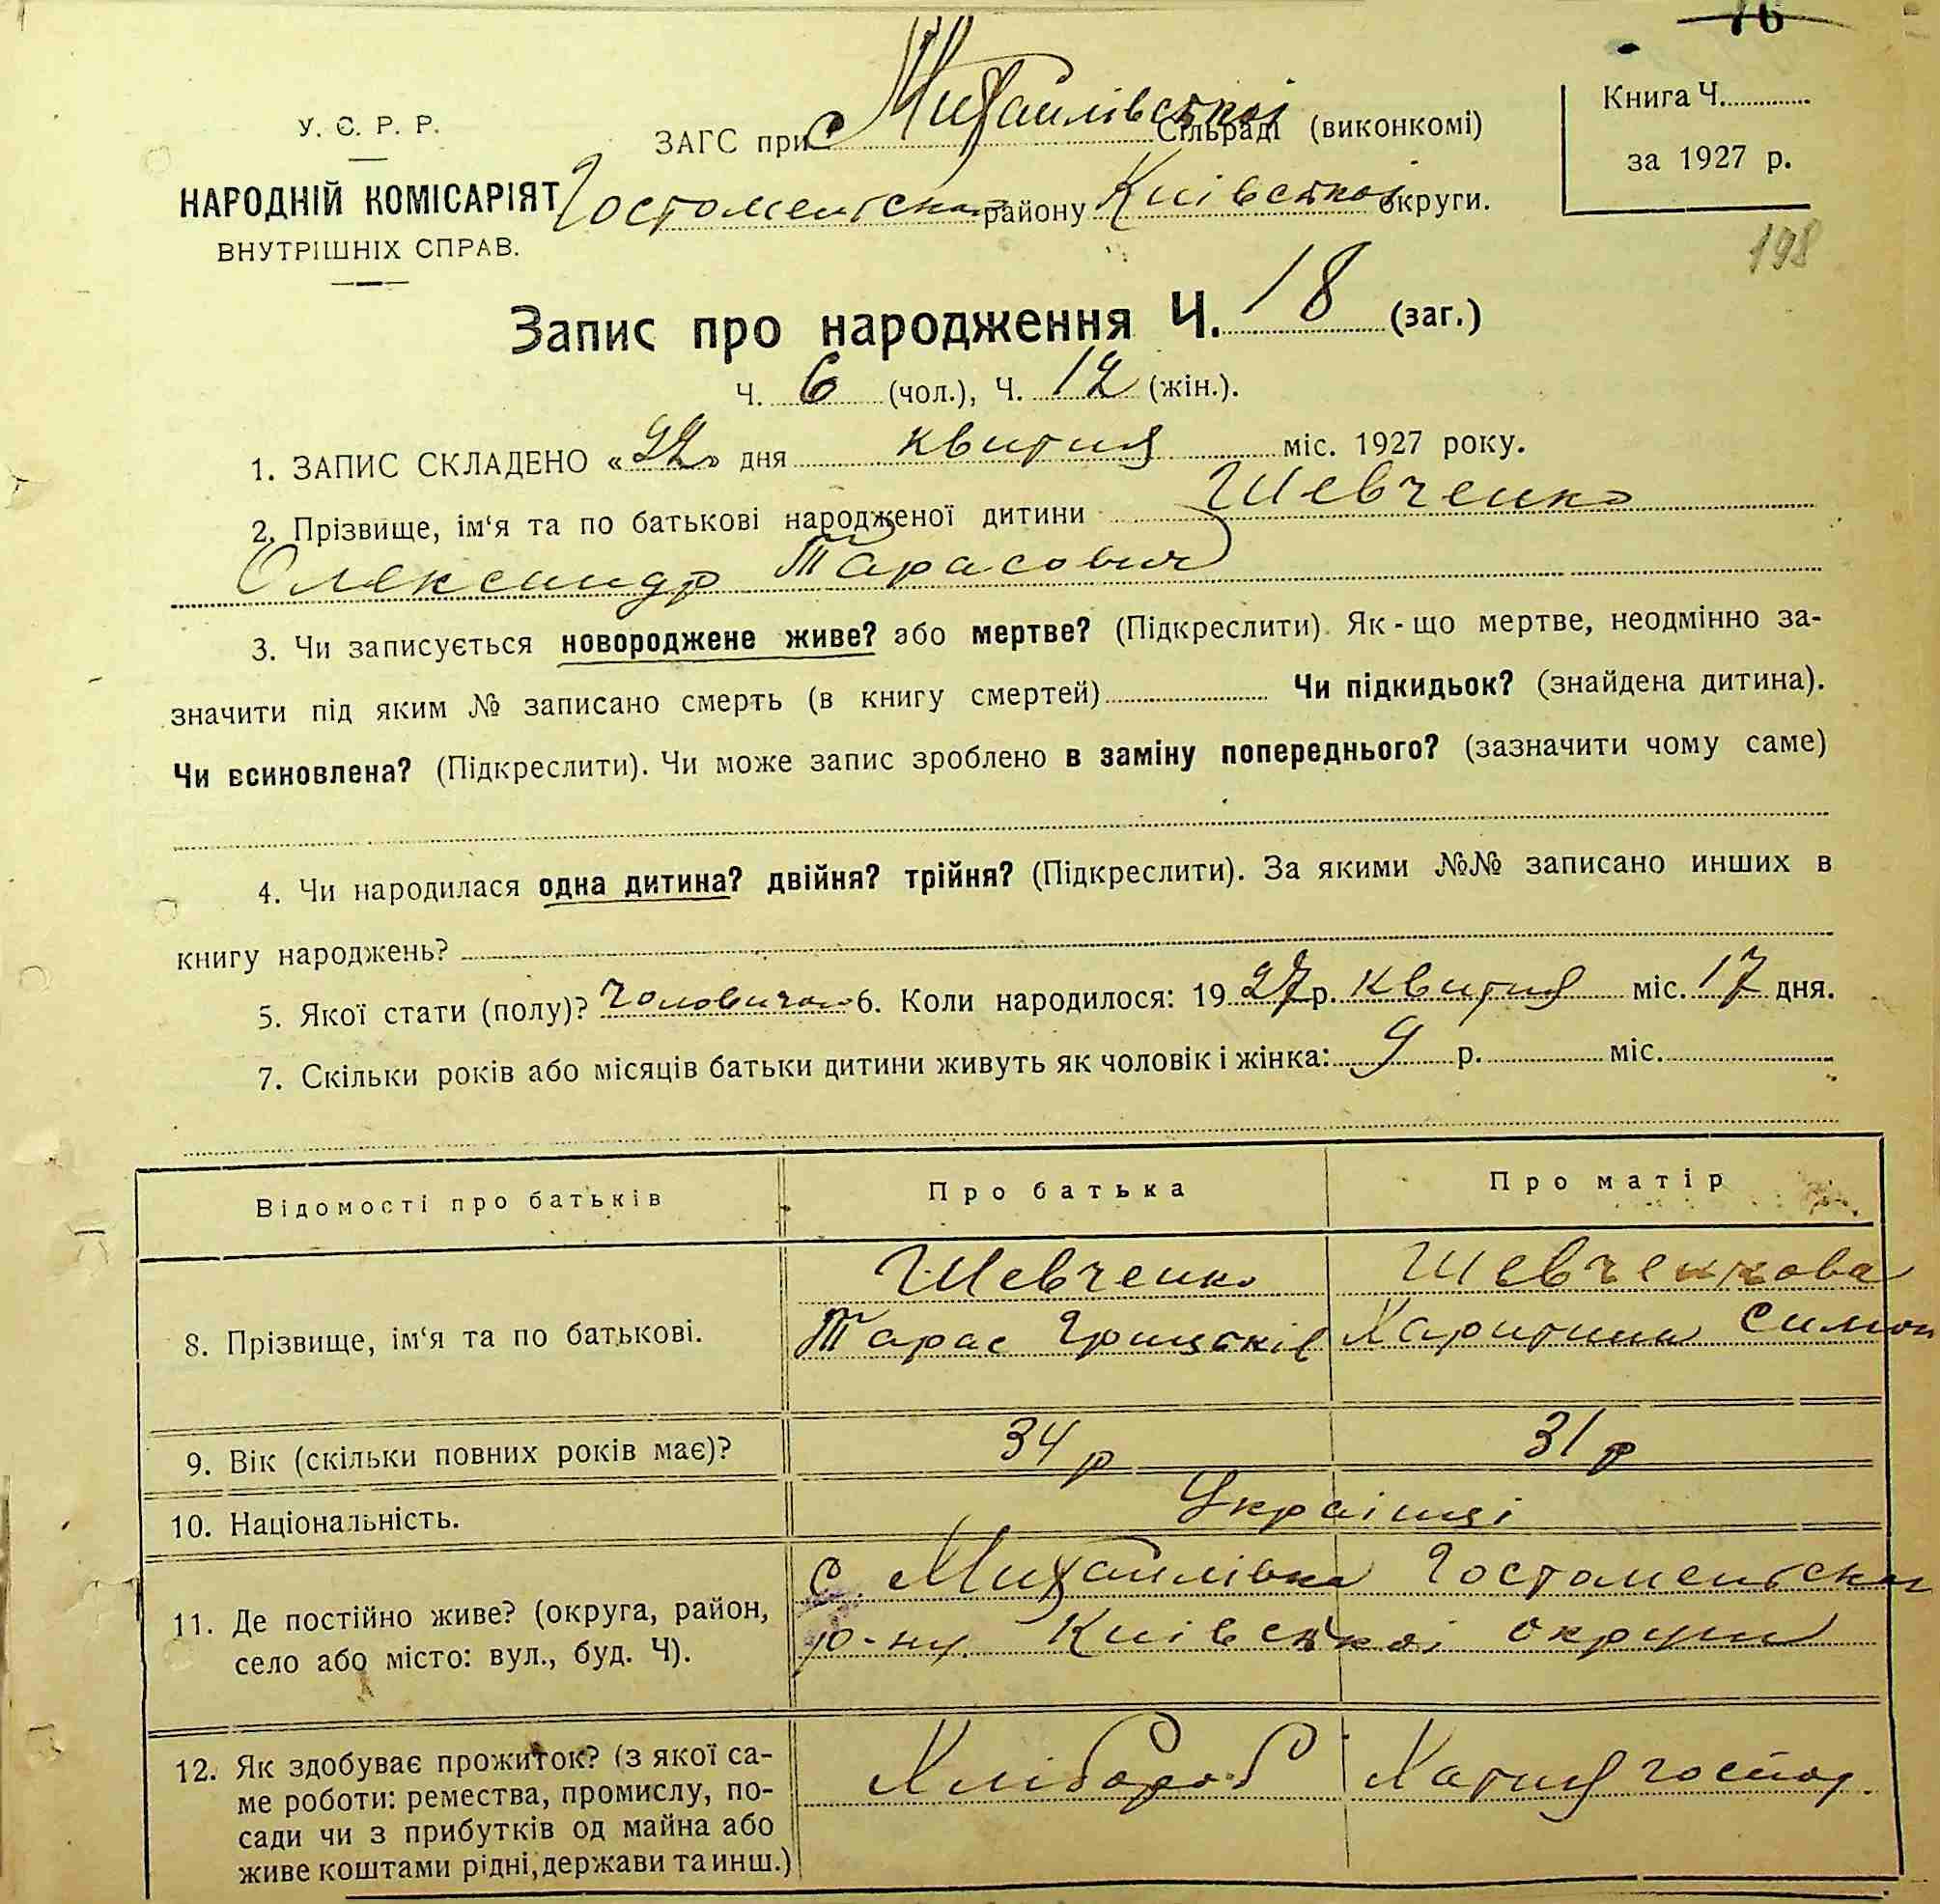 76
У. С. Р. Р.
НАРОДНІЙ КОМІСАРІЯТ
ВНУТРІШНІХ СПРАВ.
ЗАГС при С Михайлівської Сільраді (виконкомі)
Гостомельська району Київської округи.
Книга Ч.
за 1927 р.
198
Запис про народження Ч. 18 (заг.)
Ч. 6 (чол.), Ч. 12 (жін.).
1. ЗАПИС СКЛАДЕНО «22» дня квитня міс. 1927 року.
2. Прізвище, ім‘я та по батькові народженої дитини Шевченко
Олександр Тарасович
3. Чи записується новороджене живе? або мертве? (Підкреслити). Як-що мертве, неодмінно за-
значити під яким № записано смерть (в книгу смертей) Чи підкидьок? (знайдена дитина).
Чи всиновлена? (Підкреслити). Чи може запис зроблено в заміну попереднього? (зазначити чому саме)
4. Чи народилася одна дитина? двійня? трійня? (Підкреслити). За якими №№ записано инших в
книгу народжень?
5. Якої стати (полу)? 6. Коли народилося: 1927 р. квитня міс. 17 дня.
7. Скільки років або місяців батьки дитини живуть як чоловік і жінка: 9 р. міс.
Відомості про батьків Про батька Про матір
8. Прізвище, ім‘я та по батькові.
Шевченко Шевченкова
Тарас Грицьків Харитина Симон
9. Вік (скільки повних років має)? 34 р 31 р
10. Національність. Українці
11. Де постійно живе? (округа, район,
село або місто: вул., буд. Ч).
С. Михайлівка Гостомельска
р-ну Київської округи
12. Як здобуває прожиток? (з якої са-
ме роботи: ремества, промислу, по-
сади чи з прибутків од майна або
живе коштами рідні, держави та инш.)
Хлібороб Хатня господ.